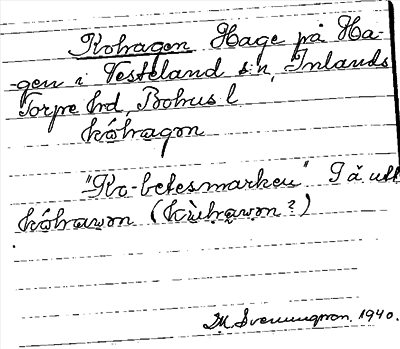 Kohagen Hage på Ha-
gen i Västerland s:n, Inlands
Torpe hd, Bohus l
kóhagən
"Ko-betesmarken" Iä utt
kóhawən (kùhawən?)
DM Svenungsson. 1940.